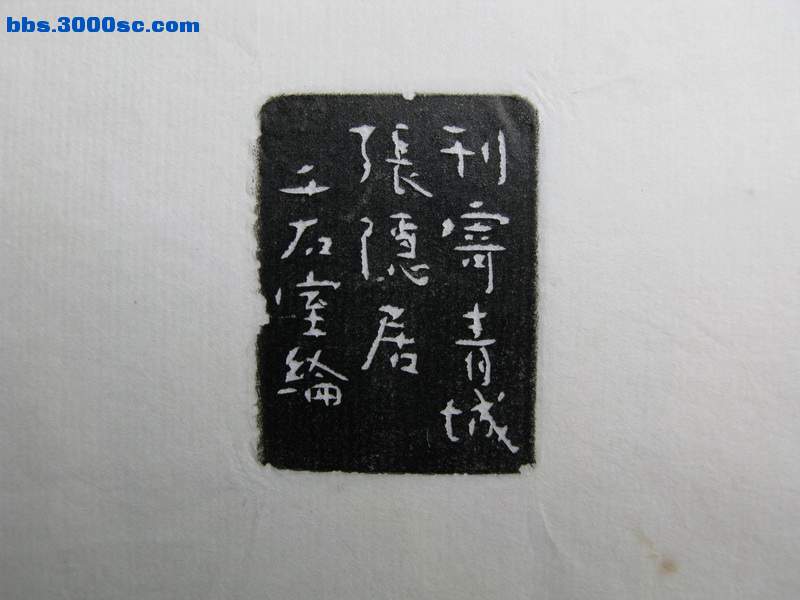 bbs.3000sc.com
刊寄青城
張隱居
千石室綸